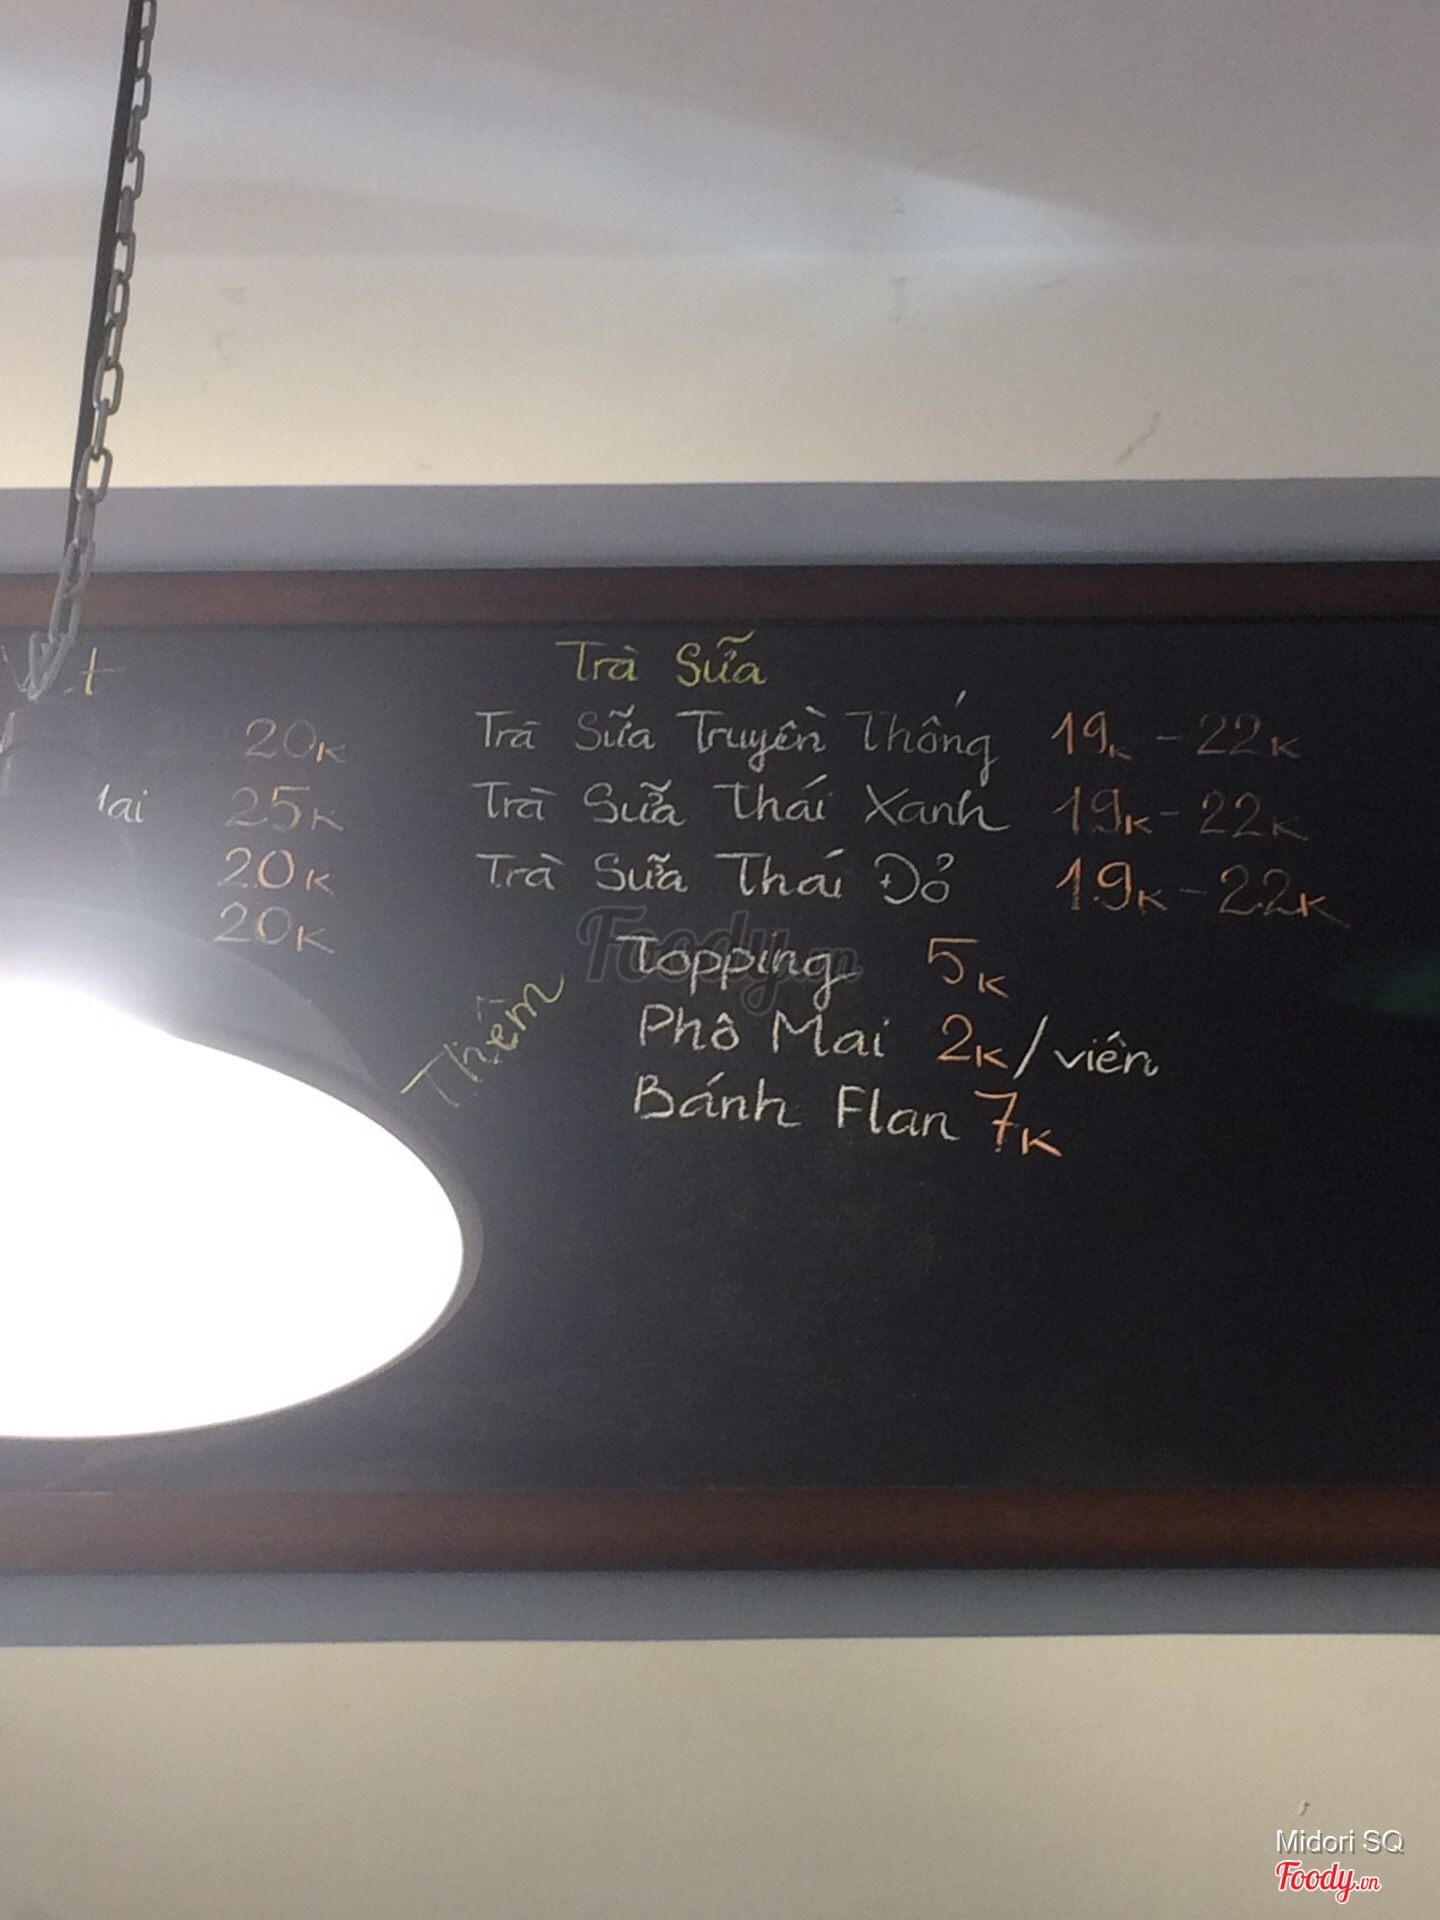 Trà Sữa
20K
25K
20K
20K
Trà Sữa Truyền Thống 19K - 22K
Trà Sữa Thái Xanh 19K - 22K
Trà Sữa Thái Đỏ 19K - 22K
Thêm
Topping 5K
Phô Mai 2K/viên
Bánh Flan 7K
Foody.vn
Midori SQ
Foody.vn